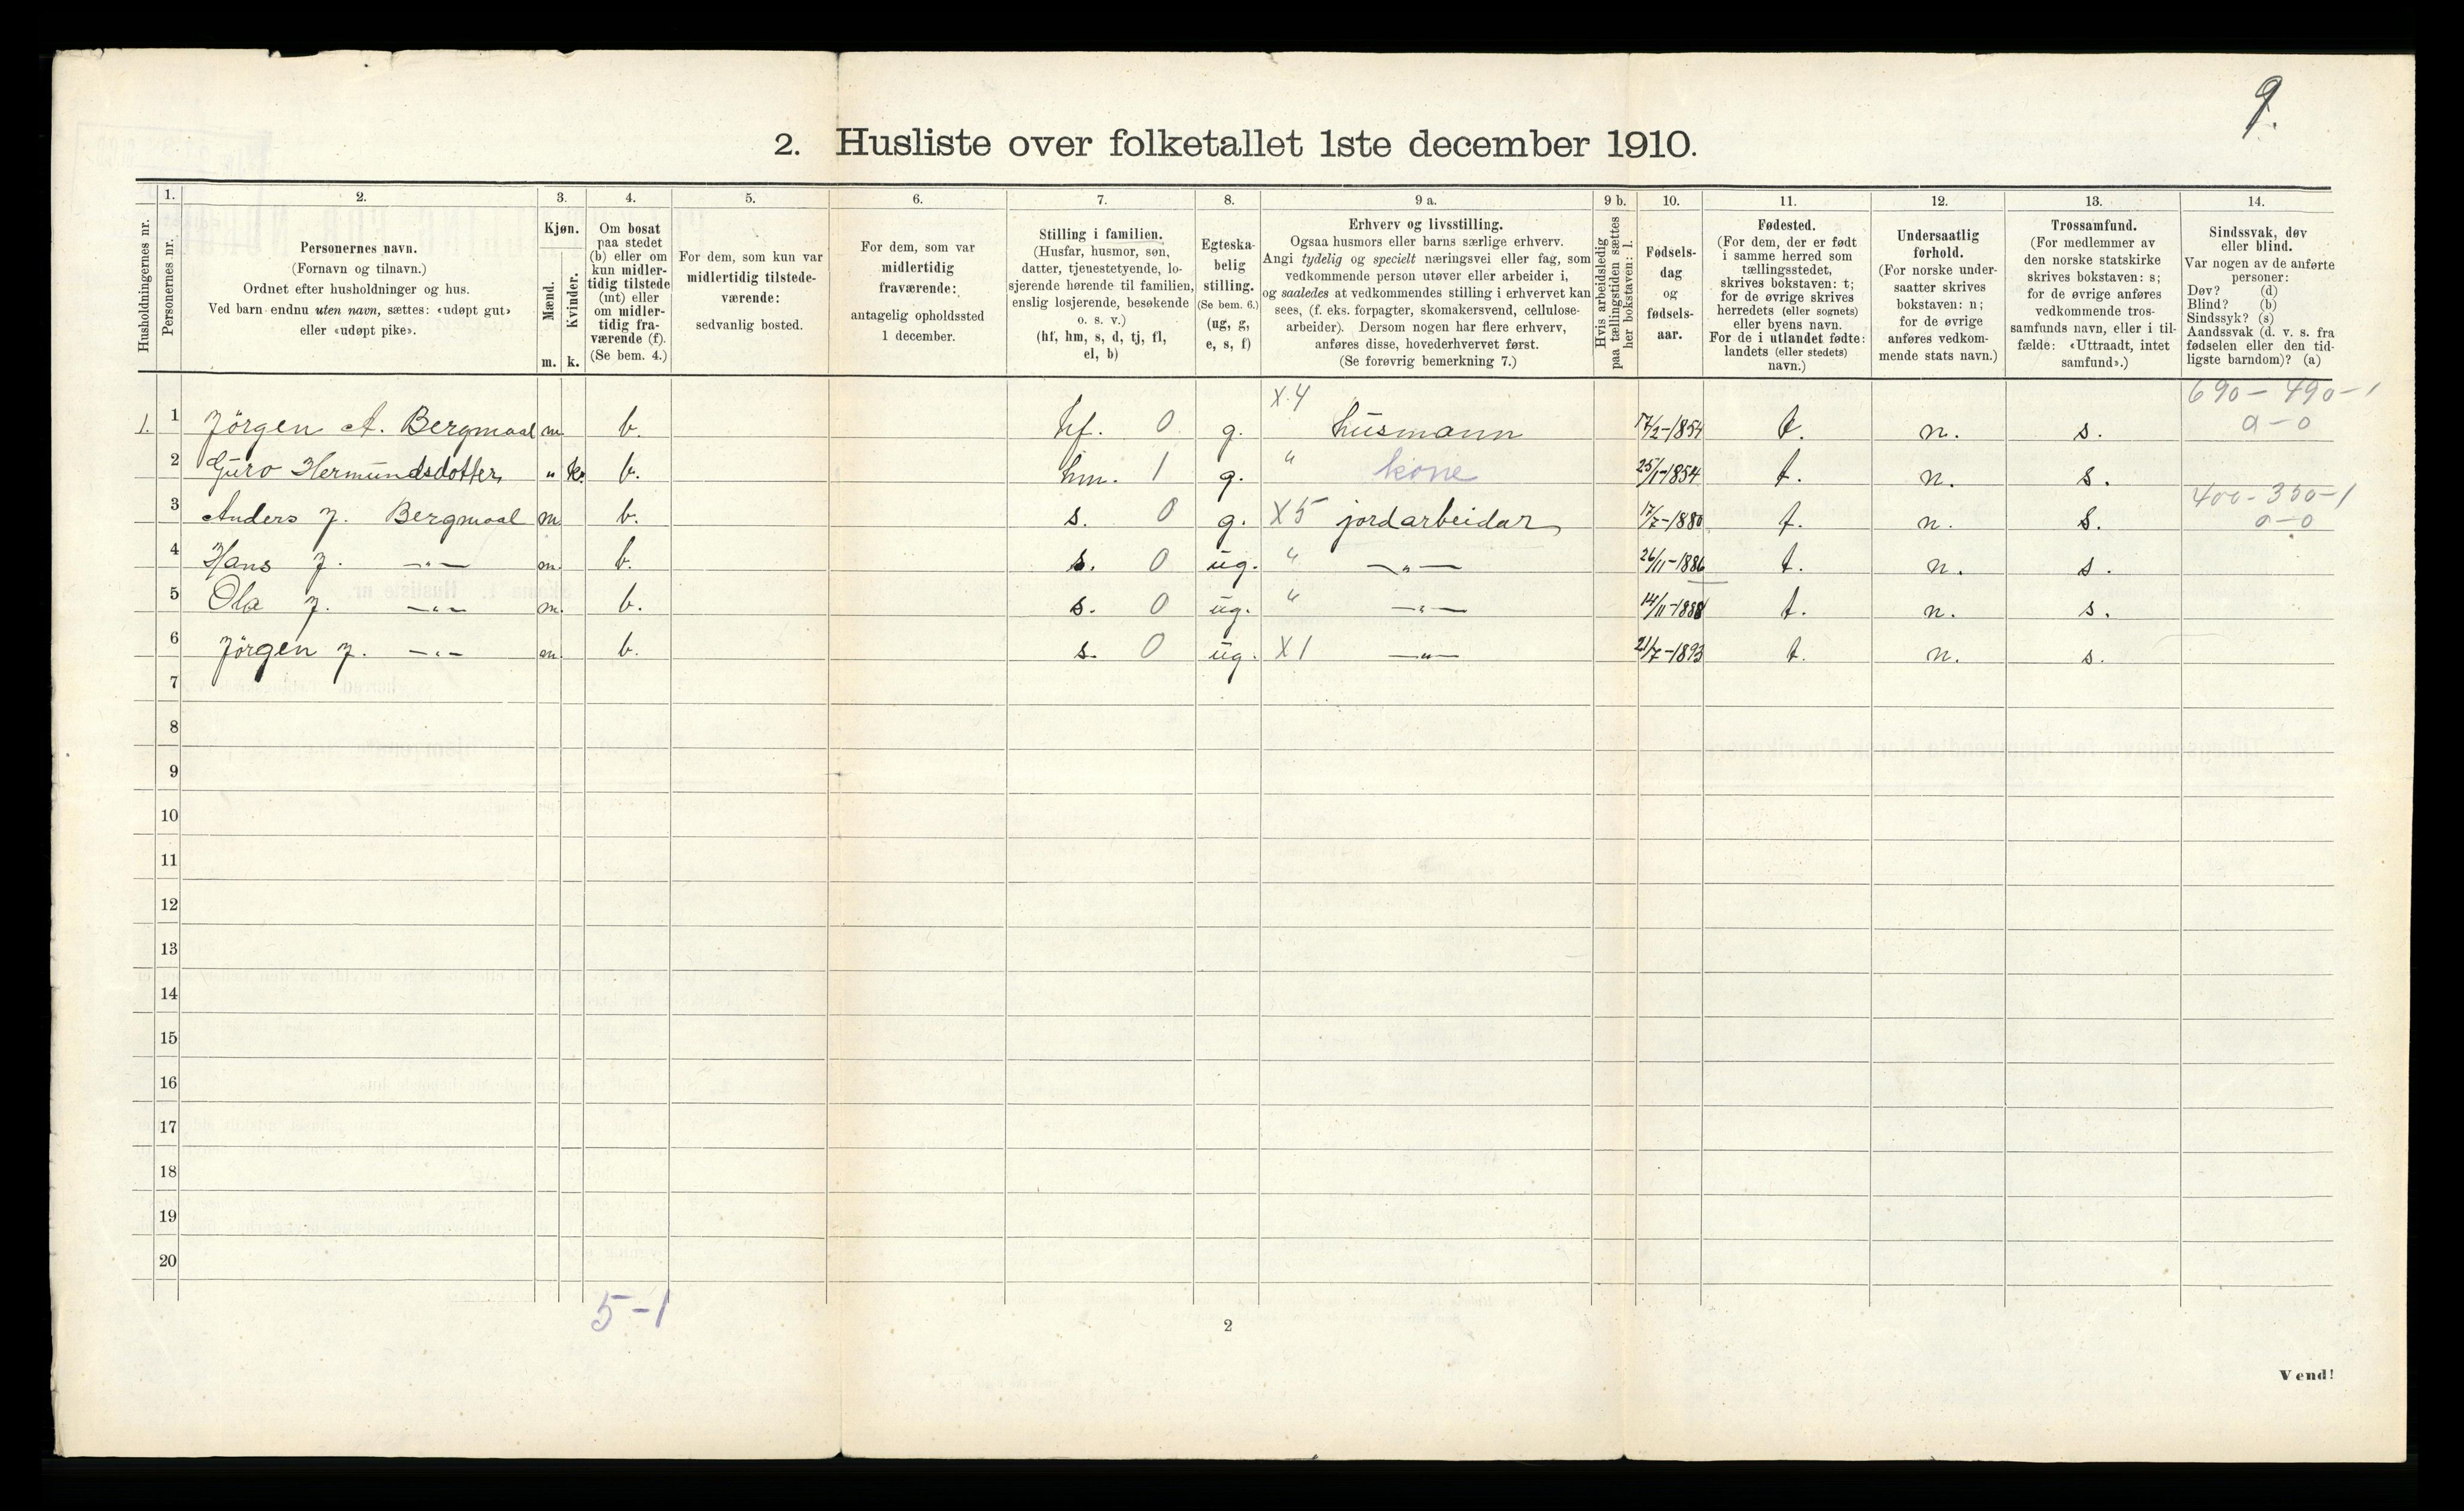 9.
2. Husliste over folketallet 1ste december 1910.
Husholdningernes nr.
1.
Personernes nr.
2.
Personernes navn.
(Fornavn og tilnavn.)
Ordnet efter husholdninger og hus.
Ved barn endnu uten navn, sættes: «udøpt gut»
eller «udøpt pike».
3.
Kjøn.
Mænd.
Kvinder.
m. k.
4.
Om bosat
paa stedet
(b) eller om
kun midler-
tidig tilstede
(mt) eller
om midler-
tidig fra-
værende (f).
(Se bem. 4.)
5.
For dem, som kun var
midlertidig tilstede-
værende:
sedvanlig bosted.
6.
For dem, som var
midlertidig
fraværende:
antagelig opholdssted
1 december.
7.
Stilling i familien.
(Husfar, husmor, søn,
datter, tjenestetyende, lo-
sjerende hørende til familien,
enslig losjerende, besøkende
o. s. v.)
(hf, hm, s, d, tj, fl,
el, b)
8.
Egteska-
belig
stilling.
(Se bem. 6.)
(ug, g,
e, s, f)
9 a.
Erhverv og livsstilling.
Ogsaa husmors eller barns særlige erhverv.
Angi tydelig og specielt næringsvei eller fag, som
vedkommende person utøver eller arbeider i,
og saaledes at vedkommendes stilling i erhvervet kan
sees, (f. eks. forpagter, skomakersvend, cellulose-
arbeider). Dersom nogen har flere erhverv,
anføres disse, hovederhvervet først.
(Se forøvrig bemerkning 7.)
9 b.
Hvis arbeidsledig
paa tællingstiden sættes
her bokstaven: l.
10.
Fødsels-
dag
og
fødsels-
aar.
11.
Fødested.
(For dem, der er født
i samme herred som
tællingsstedet,
skrives bokstaven: t;
for de øvrige skrives
herredets (eller sognets)
eller byens navn.
For de i utlandet fødte:
landets (eller stedets)
navn.)
12.
Undersaatlig
forhold.
(For norske under-
saatter skrives
bokstaven: n;
for de øvrige
anføres vedkom-
mende stats navn.)
13.
Trossamfund.
(For medlemmer av
den norske statskirke
skrives bokstaven: s;
for de øvrige anføres
vedkommende tros-
samfunds navn, eller i til-
fælde: «Uttraadt, intet
samfund».)
14.
Sindssvak, døv
eller blind.
Var nogen av de anførte
personer:
Døv? (d)
Blind? (b)
Sindssyk? (s)
Aandssvak (d. v. s. fra
fødselen eller den tid-
ligste barndom)? (a)
X 4 690 - 490 - 1
1. 1 Jörgen A. Bergmaal m. b. hf. 0 g. husmann 17/2-1854 t. n. s. 0 - 0
2 Guro Hermundsdotter " k. b. hm. 1 g. " kone 25/1-1854 t. n. s.
400 - 350 - 1
3 Anders J. Bergmaal m b. s. 0 g. X 5 jordarbeidar 17/7-1880 t. n. s. 0 - 0
4 Hans J. —"— m. b. s. 0 ug. " —"— 26/11-1886 t. n. s.
5 Ola J. —"— m. b. s. 0 ug. " —"— 14/11-1888 t. n. s.
6 Jörgen J. —"— m. b. s. 0 ug. X 1 —"— 21/7-1893 t. n. s.
7
8
9
10
11
12
13
14
15
16
17
18
19
20
5 - 1
2
Vend!